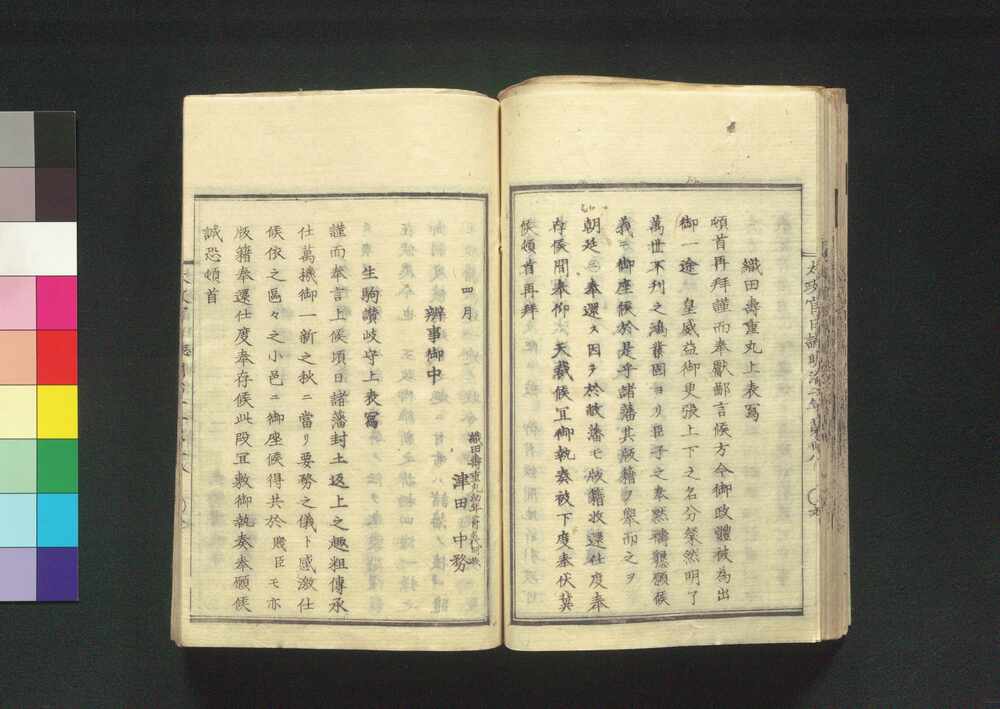 織田壽重丸上表寫
頓首再拜謹而奉獻鄙言候方今御政體被為出
御一途　皇威益御更張上下之名分粲然明了
萬世不刊之鴻業固ヨリ臣子之奉黙禱懇願候
義ニ御座候於是乎諸藩其版籍ヲ舉而之ヲ
朝廷ニ奉還ス因ヲ於敝藩モ版籍收還仕度奉
存候間奉仰　天裁候宜御執奏被下度奉伏冀
候頓首再拜
四月
織田壽重丸幼年ニ付
津田　中務
辨事御中
生駒讃岐守上表寫
謹而奉言上候頃日諸藩封土返上之趣粗傳承
仕萬機御一新之秋ニ當リ要務之儀ト感激仕
候依之區々之小邑ニ御座候得共於賤臣モ亦
版籍奉還仕度奉存候此段宜敷御執奏奉願候
誠恐頓首
太政官日誌明治二年